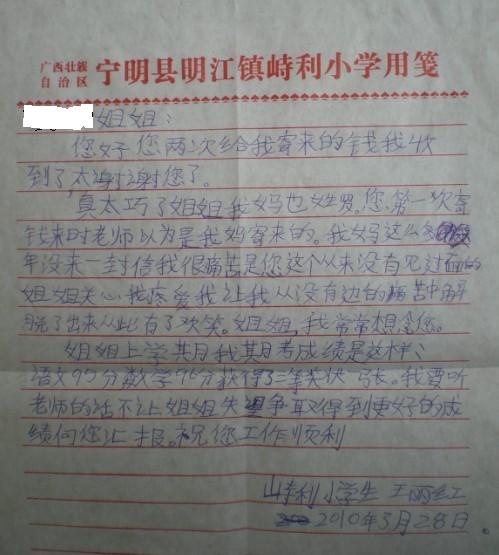 广西壮族
自治区 宁明县明江镇峙利小学用笺
姐姐：
您好您两次给我寄来的钱我收
到了太谢谢您了。
真太巧了姐姐我妈也姓罗。您第一次寄
钱来时老师以为是我妈寄来的。我妈这么多
年没来一封信我很痛苦是您这个从来没有见过面的
姐姐关心我疼爱我让我从没有边的痛苦中解
脱了出来从此有了欢笑。姐姐，我常常想念您。
姐姐上学期我期考成绩是这样、
语文95分数学96分获得了三等奖状一张。我要听
老师的话不让姐姐失望争取得到更好的成
绩向您汇报。祝您工作顺利
峙利小学生 王丽红
2010年3月28日。